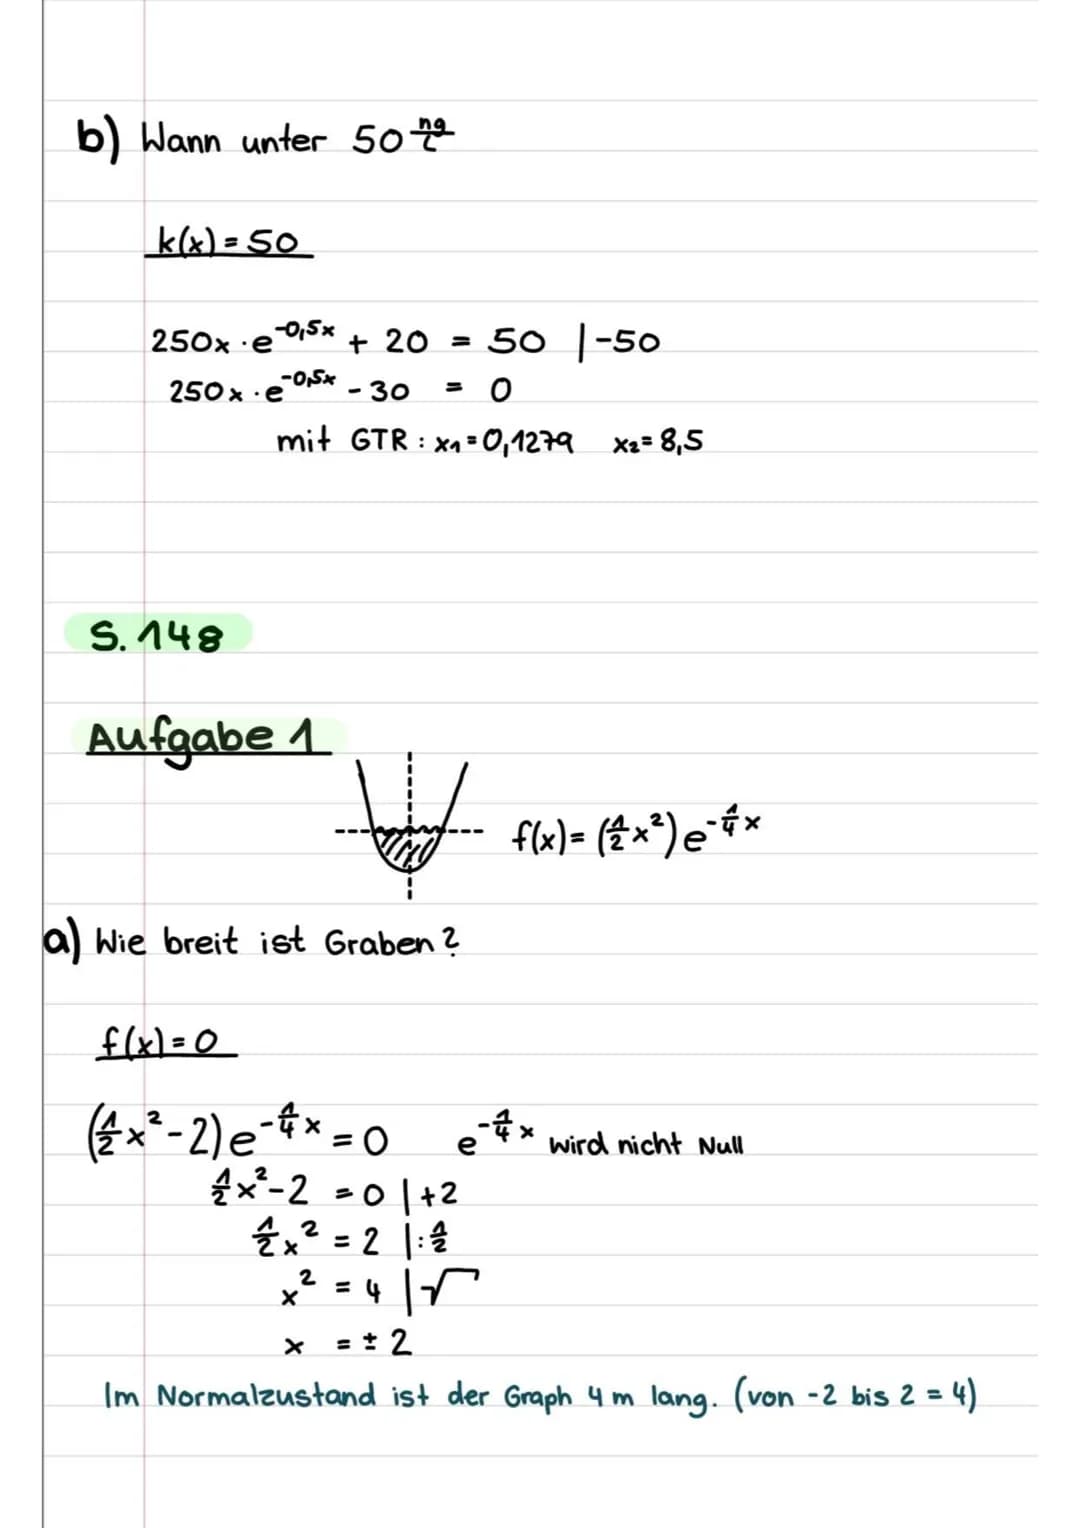 b) Wann unter 50 ng/l
k(x) = 50
250x · e^-0,5x + 20 = 50 |-50
250x · e^-0,5x - 30 = 0
mit GTR : x₁ = 0,1279 x₂ = 8,5
S. 148
Aufgabe 1
f(x) = (1/2 x²) e^-1/4 x
a) Wie breit ist Graben?
f(x) = 0
(1/2 x² - 2) e^-1/4 x = 0 e^-1/4 x wird nicht Null
1/2 x² - 2 = 0 | +2
1/2 x² = 2 | : 1/2
x² = 4 | √
x = ± 2
Im Normalzustand ist der Graph 4 m lang. (von -2 bis 2 = 4)